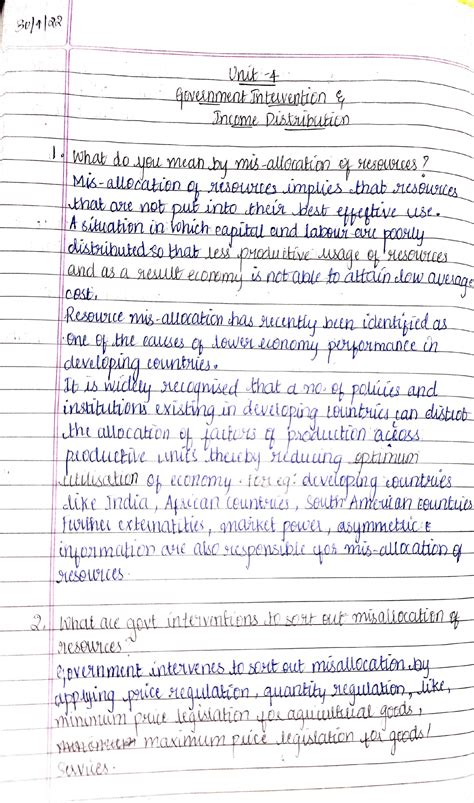 30/9/22
Unit-4
Government Intervention &
Income Distribution
1. What do you mean by mis-allocation of resources?
Mis-allocation of resources implies that resources
that are not put into their best effective use.
A situation in which capital and labour are poorly
distributed so that less productive usage of resources
and as a result economy is not able to attain low average
cost.
Resource mis-allocation has recently been identified as
one of the causes of lower economy performance in
developing countries.
It is widely recognised that a no. of policies and
institutions existing in developing countries can distrot
the allocation of factors of production across
productive units thereby reducing optimum
utilisation of economy. for eg: developing countries
like India, African countries, South American countries
further externatities, market power, asymmetric
information are also responsible for mis-allocation of
resources.
2. What are govt interventions to sort out misallocation of
resources?
Government intervenes to sort out misallocation by
applying price regulation, quantity regulation, like,
minimum price legislation for agricultural goods,
maximum price legislation for goods/
services.